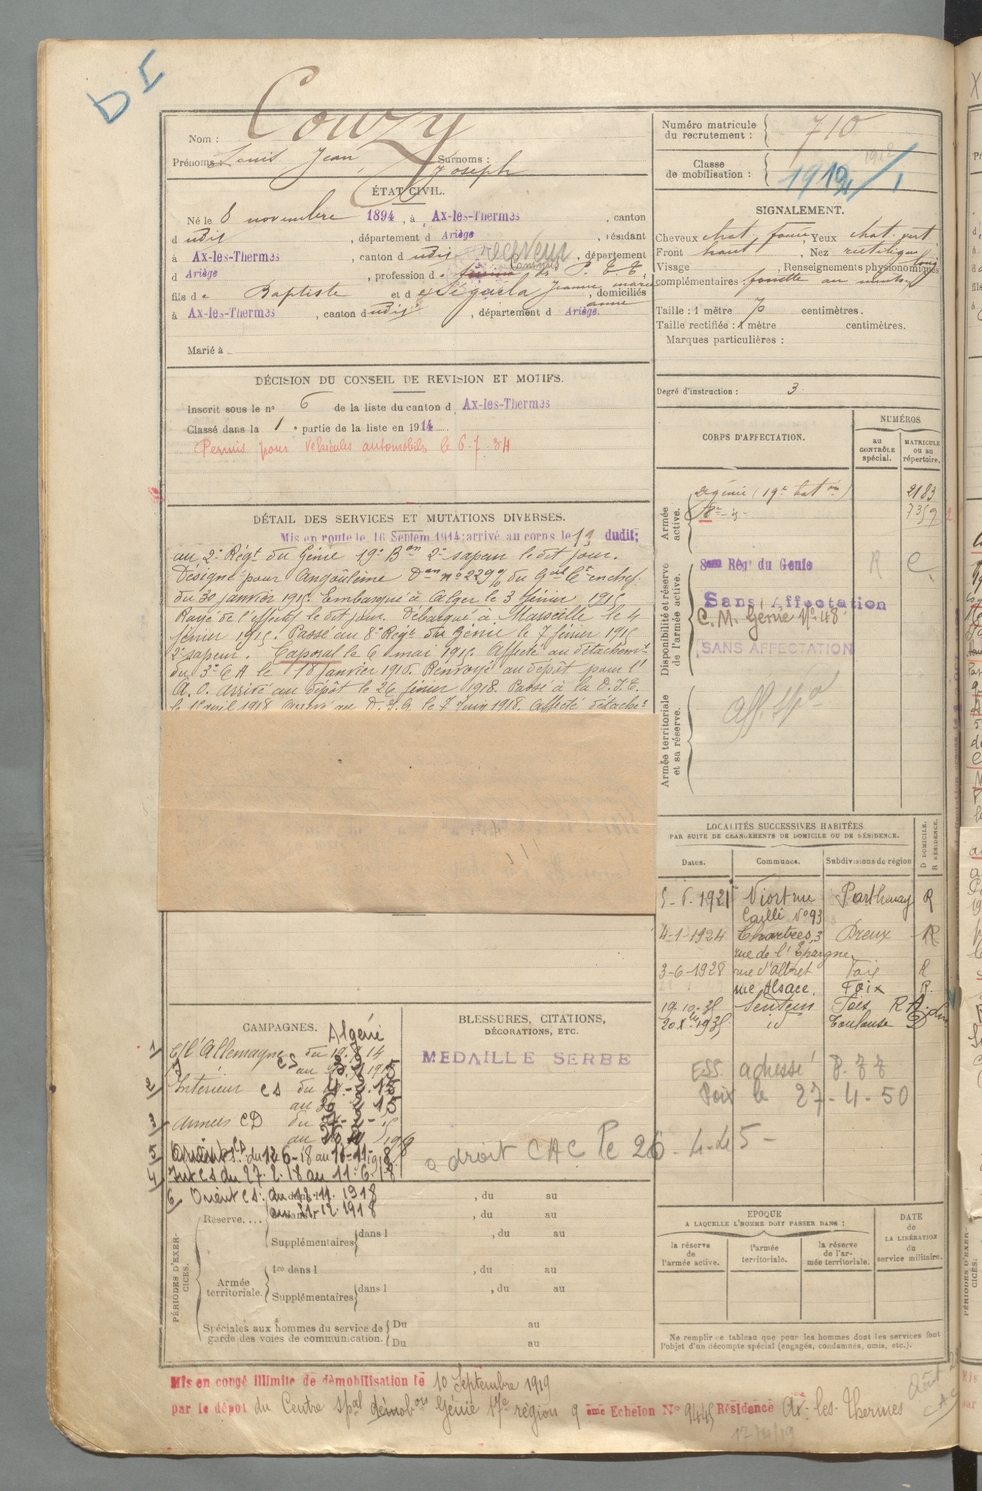 DE
Nom : Couzy
Prénoms : Louis Jean Joseph
Surnoms :
Numéro matricule du recrutement : 710
Classe de mobilisation : 1912
ÉTAT CIVIL.
Né le 8 novembre 1894, à Ax-les-Thermes, canton
d udit, département d Ariège, résidant
à Ax-les-Thermes, canton d udit, département
d Ariège, profession de receveur P. T. T.
fils de Baptiste et de Ségaela Jeanne marie anne, domiciliés
à Ax-les-Thermes, canton dudit, département d Ariège.
Marié à
SIGNALEMENT.
Cheveux chat. foncé, Yeux chat. vert
Front haut, Nez rectiligne
Visage long, Renseignements physionomiques
complémentaires : fossette au menton
Taille : 1 mètre 70 centimètres.
Taille rectifiée : 1 mètre centimètres.
Marques particulières :
Degré d'instruction : 3
DÉCISION DU CONSEIL DE REVISION ET MOTIFS.
Inscrit sous le n° 6 de la liste du canton d Ax-les-Thermes
Classé dans la 1e partie de la liste en 1914
Permis pour véhicules automobiles le 6-7-34
CORPS D'AFFECTATION.
NUMÉROS
au CONTRÔLE spécial.
MATRICULE ou au répertoire.
Armée active.
2e génie (19e bat on) 2183
8e _ 7359
Disponibilité et réserve de l'armée active.
8eme Régt du Genie
Sans Affectation
C. M. Génie N° 48
SANS AFFECTATION
Armée territoriale et sa réserve.
Aff. spal
DÉTAIL DES SERVICES ET MUTATIONS DIVERSES.
Mis en route le 16 Septem 1914; arrivé au corps le 19 dudit;
au 2e Régt du Génie 19e Bon 2e sapeur le dit jour.
Désigné pour Angoulême Don n° 2299 du Gal Ct en chef
du 30 janvier 1915. Embarqué à Alger le 3 février 1915
Rayé de l'effectif le dit jour. Débarqué à Marseille le 4
février 1915. Passé au 8e Régt du Génie le 7 février 1915
2e sapeur. Caporal le 6 mai 1915. Affecté au détachemt
du 3e CA le 18 janvier 1916. Renvoyé au dépôt pour l'
A. O. arrivé au dépôt le 26 février 1918. Passé à la D.T.E.
le 1er avril 1918. le 2 Juin 1918. affecté détachet
LOCALITÉS SUCCESSIVES HABITÉES
PAR SUITE DE CHANGEMENTS DE DOMICILE OU DE RÉSIDENCE.
Dates. Communes. Subdivisions de région
D DOMICILE. R RÉSIDENCE.
5-5-1921 Niort rue N° 93 Parthenay R
4-1-1924 Chartres 3 rue de l'Epargne Dreux R
3-6-1928 rue d'albret Foix R
rue Alsace. Foix R.
19 10-35 Sentein Foix R
20 1935 id Toulouse D
ESS adressé 8. ZZ
Foix le 27-4-50
CAMPAGNES.
Algérie
c/ l'Allemagne du 19.9.14
Intérieur CS
armées CD
Orient CD du 12 6-18 au 10-11-1918
Int CS du 27-2-18 au 11-6-18
Orient CS: du 11.11.1918
au 31-12-1918
BLESSURES, CITATIONS, DÉCORATIONS, ETC.
MEDAILLE SERBE
a droit CAC le 26-4-45-
PÉRIODES D'EXERCICES.
Réserve.... , du au
, du au
Supplémentaires dans l , du au
Armée territoriale. 1re dans l , du au
Supplémentaires dans l , du au
Spéciales aux hommes du service de garde des voies de communication. Du au
Du au
EPOQUE
A LAQUELLE L'HOMME DOIT PASSER DANS :
la réserve de l'armée active.
l'armée territoriale.
la réserve de l'armée territoriale.
DATE de LA LIBÉRATION du service militaire.
Ne remplir ce tableau que pour les hommes dont les services font
l'objet d'un décompte spécial (engagés, condamnés, omis, etc.).
Mis en congé illimité de démobilisation le 10 Septembre 1919
par le dépôt du Centre spal démobon Génie 17e région 9 eme Echelon N° 9445 Résidence Ax-les-Thermes